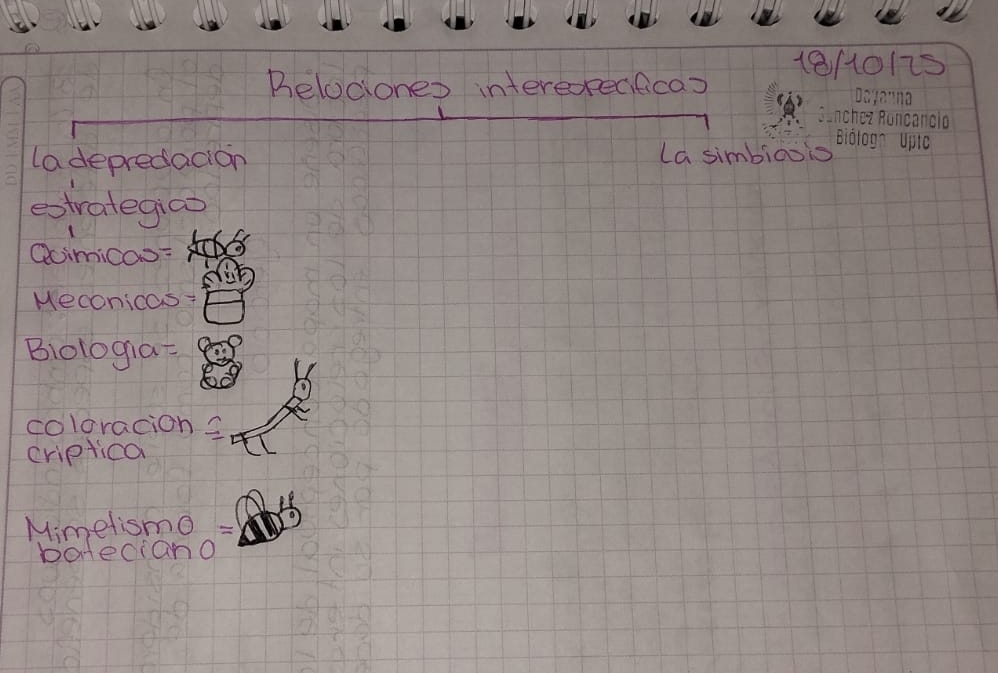 18/10/25
Relaciones interespecificas
Dayanna
Sanchez Roncancio
Bióloga Uptc
La depredación
La simbiosis
estrategias
Químicas=
Mecanicas=
Biologia=
coloracion =
criptica
Mimetismo =
bateciano